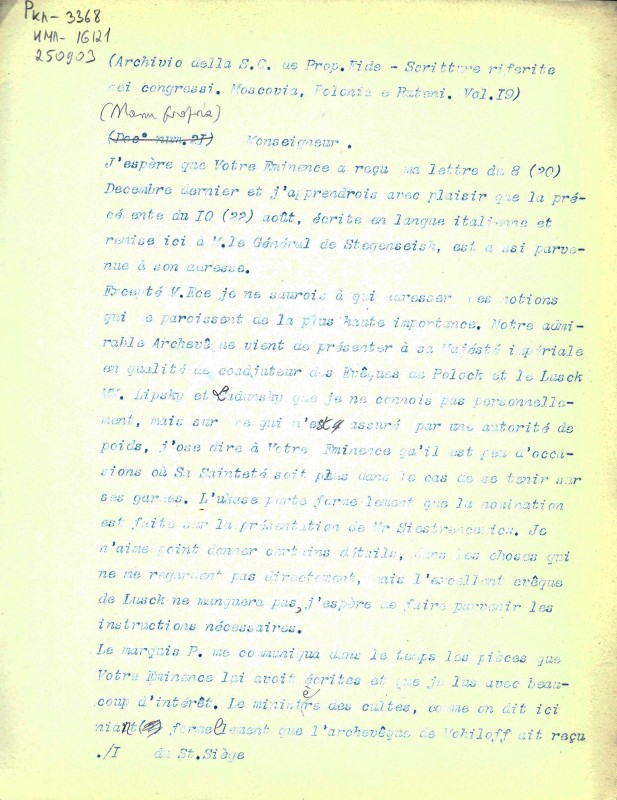 РКЛ-3368
ИМЛ-16121
250903
(Archivio della S.C. de Prop.Fide - Scritture riferite
nei congressi. Moscovia, Polonia e Ruteni. Vol.I9)
(Manu propria)
(Doc° num.2I) Monseigneur .
J'espère que Votre Eminence a reçu ma lettre du 8 (20)
Decembre dernier et j'apprendrois avec plaisir que la pré-
cédente du IO (22) août, écrite en langue italienne et
remise ici à M.le Général de Stegenseisk, est aussi parve-
nue à son adresse.
Excepté V.Ece je ne saurois à qui adresser des notions
qui me paroissent de la plus haute importance. Notre admi-
rable Archevêque vient de présenter à sa Majésté impériale
en qualité de coadjuteur des Evêques de Polock et le Lusck
MM. Lipsky et Ladunsky que je ne connois pas personnelle-
ment, mais sur ce qui m'est assuré par une autorité de
poids, j'ose dire à Votre Eminence qu'il est peu d'occa-
sions où Sa Sainteté soit plus dans le cas de se tenir sur
ses gardes. L'ukase porte formellement que la nomination
est faite sur la présentation de Mr Siestrancevicz. Je
n'aime point donner certains détails, dans les choses qui
ne me regardent pas directement, mais l'excellent evêque
de Lusck ne manquera pas, j'espère de faire parvenir les
instructions nécessaires.
Le marquis P. me communiqua dans le temps les pièces que
Votre Eminence lui avoit écrites et que je lus avec beau-
coup d'intérêt. Le ministère des cultes, comme on dit ici
niant formellement que l'archevêque de Mohiloff ait reçu
./I du St.Siège